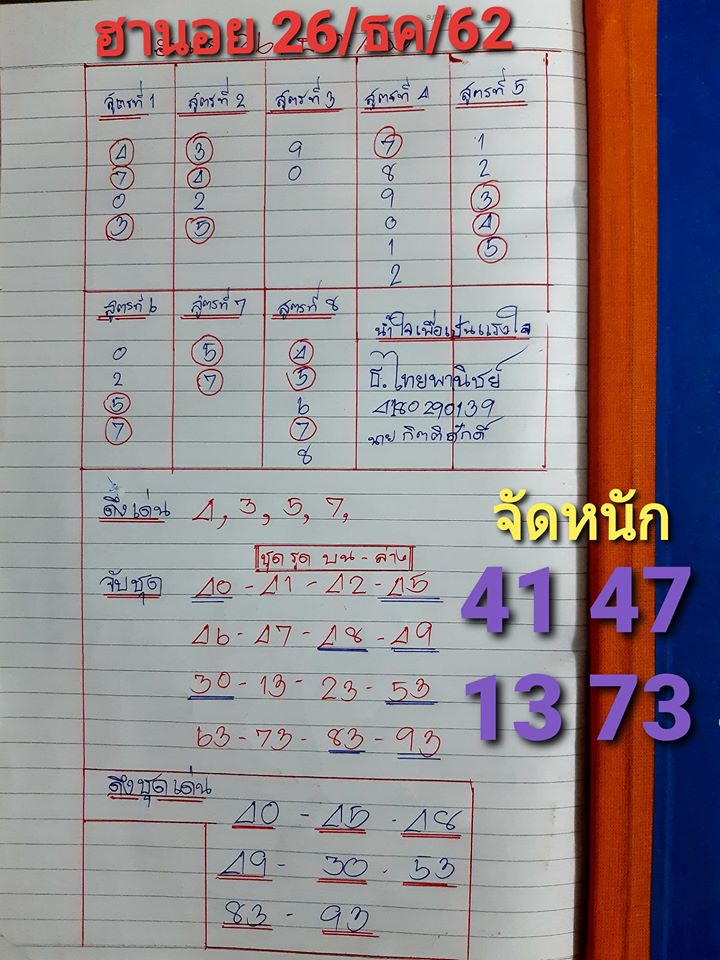 ฮานอย 26/ธค/62
สูตรที่ 1 สูตรที่ 2 สูตรที่ 3 สูตรที่ 4 สูตรที่ 5
4 3 9 7 1
7 4 0 8 2
0 2 9 3
3 5 0 4
1 5
2
สูตรที่ 6 สูตรที่ 7 สูตรที่ 8 น้ำใจเพื่อเป็นแรงใจ
0 5 4 ธ.ไทยพานิชย์
2 7 5 4180290139
5 6 นาย กิตติศักดิ์
7 7
8
ดึงเด่น 4, 3, 5, 7,
จัดหนัก
ชุด รูด บน - ล่าง
จับชุด 40 - 41 - 42 - 45
41 47
46 - 47 - 48 - 49
30 - 13 - 23 - 53
13 73
63 - 73 - 83 - 93
ดึงชุดเด่น
40 - 45 . 48
49 - 30 . 53
83 - 93